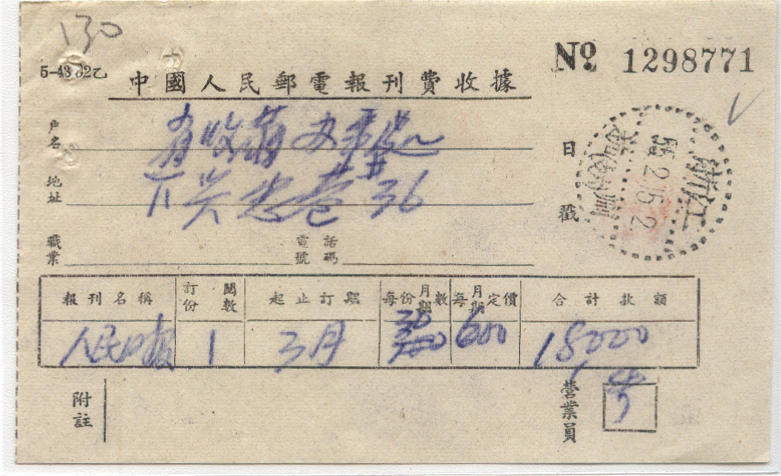 130
5-4802乙
中國人民郵電報刊費收據
№ 1298771
戶名
地址 36
日戳
浙江
55.2.15.2
職業 電話號碼
報刊名稱 訂閱份數 起止訂期 每份月期數 每月期定價 合計款額
人民日報 1 三月 30 600 18000
附註
營業員